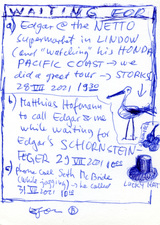 WAITING FOR
a) Edgar @ the NETTO
supermarket in LINDOW
(and "watching" his HONDA
PACIFIC COAST → we
did a great tour → STORKS
28 VII 2021 1930
b) Matthias Hofmann
to call Edgar @ me
while waiting for
Edgar's SCHORNSTEIN-
FEGER 29 VII 2021 10
c) phone call Seth McBride
(while jogging) → he called
31 VII 2021 10
LUCKY HAT